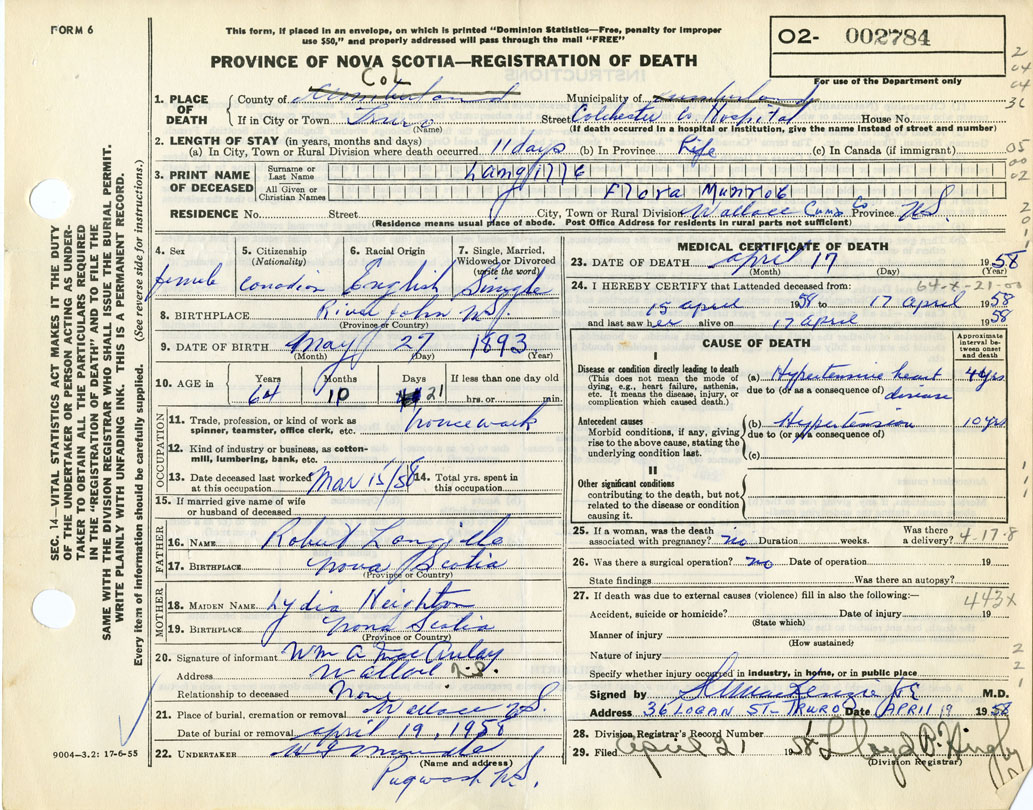 FORM 6
This form, if placed in an envelope, on which is printed "Dominion Statistics—Free, penalty for improper
use $50," and properly addressed will pass through the mail "FREE"
O2- 002784
For use of the Department only
PROVINCE OF NOVA SCOTIA—REGISTRATION OF DEATH
Col
1. PLACE OF DEATH
County of Cumberland Municipality of Cumberland
If in City or Town Truro Street Colchester Co. Hospital House No.
(Name) (If death occurred in a hospital or institution, give the name instead of street and number)
2. LENGTH OF STAY (in years, months and days)
(a) In City, Town or Rural Division where death occurred 11 days (b) In Province Life (c) In Canada (if immigrant)
3. PRINT NAME OF DECEASED
Surname or Last Name Langille
All Given or Christian Names Flora Munroe
RESIDENCE No. Street City, Town or Rural Division Wallace Cumb Co Province N.S.
(Residence means usual place of abode. Post Office Address for residents in rural parts not sufficient)
4. Sex female
5. Citizenship (Nationality) Canadian
6. Racial Origin English
7. Single, Married, Widowed or Divorced (write the word) Single
8. BIRTHPLACE River John N.S.
(Province or Country)
9. DATE OF BIRTH May 27 1893
(Month) (Day) (Year)
10. AGE in Years 64 Months 10 Days 21 If less than one day old hrs. or min.
OCCUPATION
11. Trade, profession, or kind of work as spinner, teamster, office clerk, etc. housework
12. Kind of industry or business, as cotton-mill, lumbering, bank, etc.
13. Date deceased last worked at this occupation Mar 15/58 14. Total yrs. spent in this occupation
15. If married give name of wife or husband of deceased
FATHER
16. NAME Robert Langille
17. BIRTHPLACE Nova Scotia
(Province or Country)
MOTHER
18. MAIDEN NAME Lydia Heighton
19. BIRTHPLACE Nova Scotia
(Province or Country)
20. Signature of informant Wm A MacAulay
Address Wallace N.S.
Relationship to deceased None
21. Place of burial, cremation or removal Wallace N.S.
Date of burial or removal April 19, 1958
22. UNDERTAKER
(Name and address)
Pugwash N.S.
9004—3.2: 17-6-55
MEDICAL CERTIFICATE OF DEATH
23. DATE OF DEATH April 17 1958
(Month) (Day) (Year)
64-x-21-00
24. I HEREBY CERTIFY that I attended deceased from:
15 April 1958 to 17 April 1958
and last saw her alive on 17 April 1958
CAUSE OF DEATH
Approximate interval between onset and death
I
Disease or condition directly leading to death
(This does not mean the mode of dying, e.g., heart failure, asthenia, etc. It means the disease, injury, or complication which caused death.)
(a) Hypertensive heart disease 4 yrs
due to (or as a consequence of)
Antecedent causes
Morbid conditions, if any, giving rise to the above cause, stating the underlying condition last.
(b) Hypertension 10 yrs
due to (or as a consequence of)
(c)
II
Other significant conditions
contributing to the death, but not related to the disease or condition causing it.
25. If a woman, was the death associated with pregnancy? no Duration weeks. Was there a delivery? 4-17-8
26. Was there a surgical operation? no Date of operation 19
State findings Was there an autopsy?
27. If death was due to external causes (violence) fill in also the following:— 443x
Accident, suicide or homicide? Date of injury 19
(State which)
Manner of injury
(How sustained)
Nature of injury
Specify whether injury occurred in industry, in home, or in public place
Signed by M.D.
Address 36 LOGAN ST—TRURO Date APRIL 19 1958
28. Division Registrar's Record Number
29. Filed April 21 1958 Lloyd
(Division Registrar)
SEC. 14—VITAL STATISTICS ACT MAKES IT THE DUTY
OF THE UNDERTAKER OR PERSON ACTING AS UNDER-
TAKER TO OBTAIN ALL THE PARTICULARS REQUIRED
IN THE "REGISTRATION OF DEATH" AND TO FILE THE
SAME WITH THE DIVISION REGISTRAR WHO SHALL ISSUE THE BURIAL PERMIT.
WRITE PLAINLY WITH UNFADING INK. THIS IS A PERMANENT RECORD.
Every item of information should be carefully supplied. (See reverse side for instructions.)